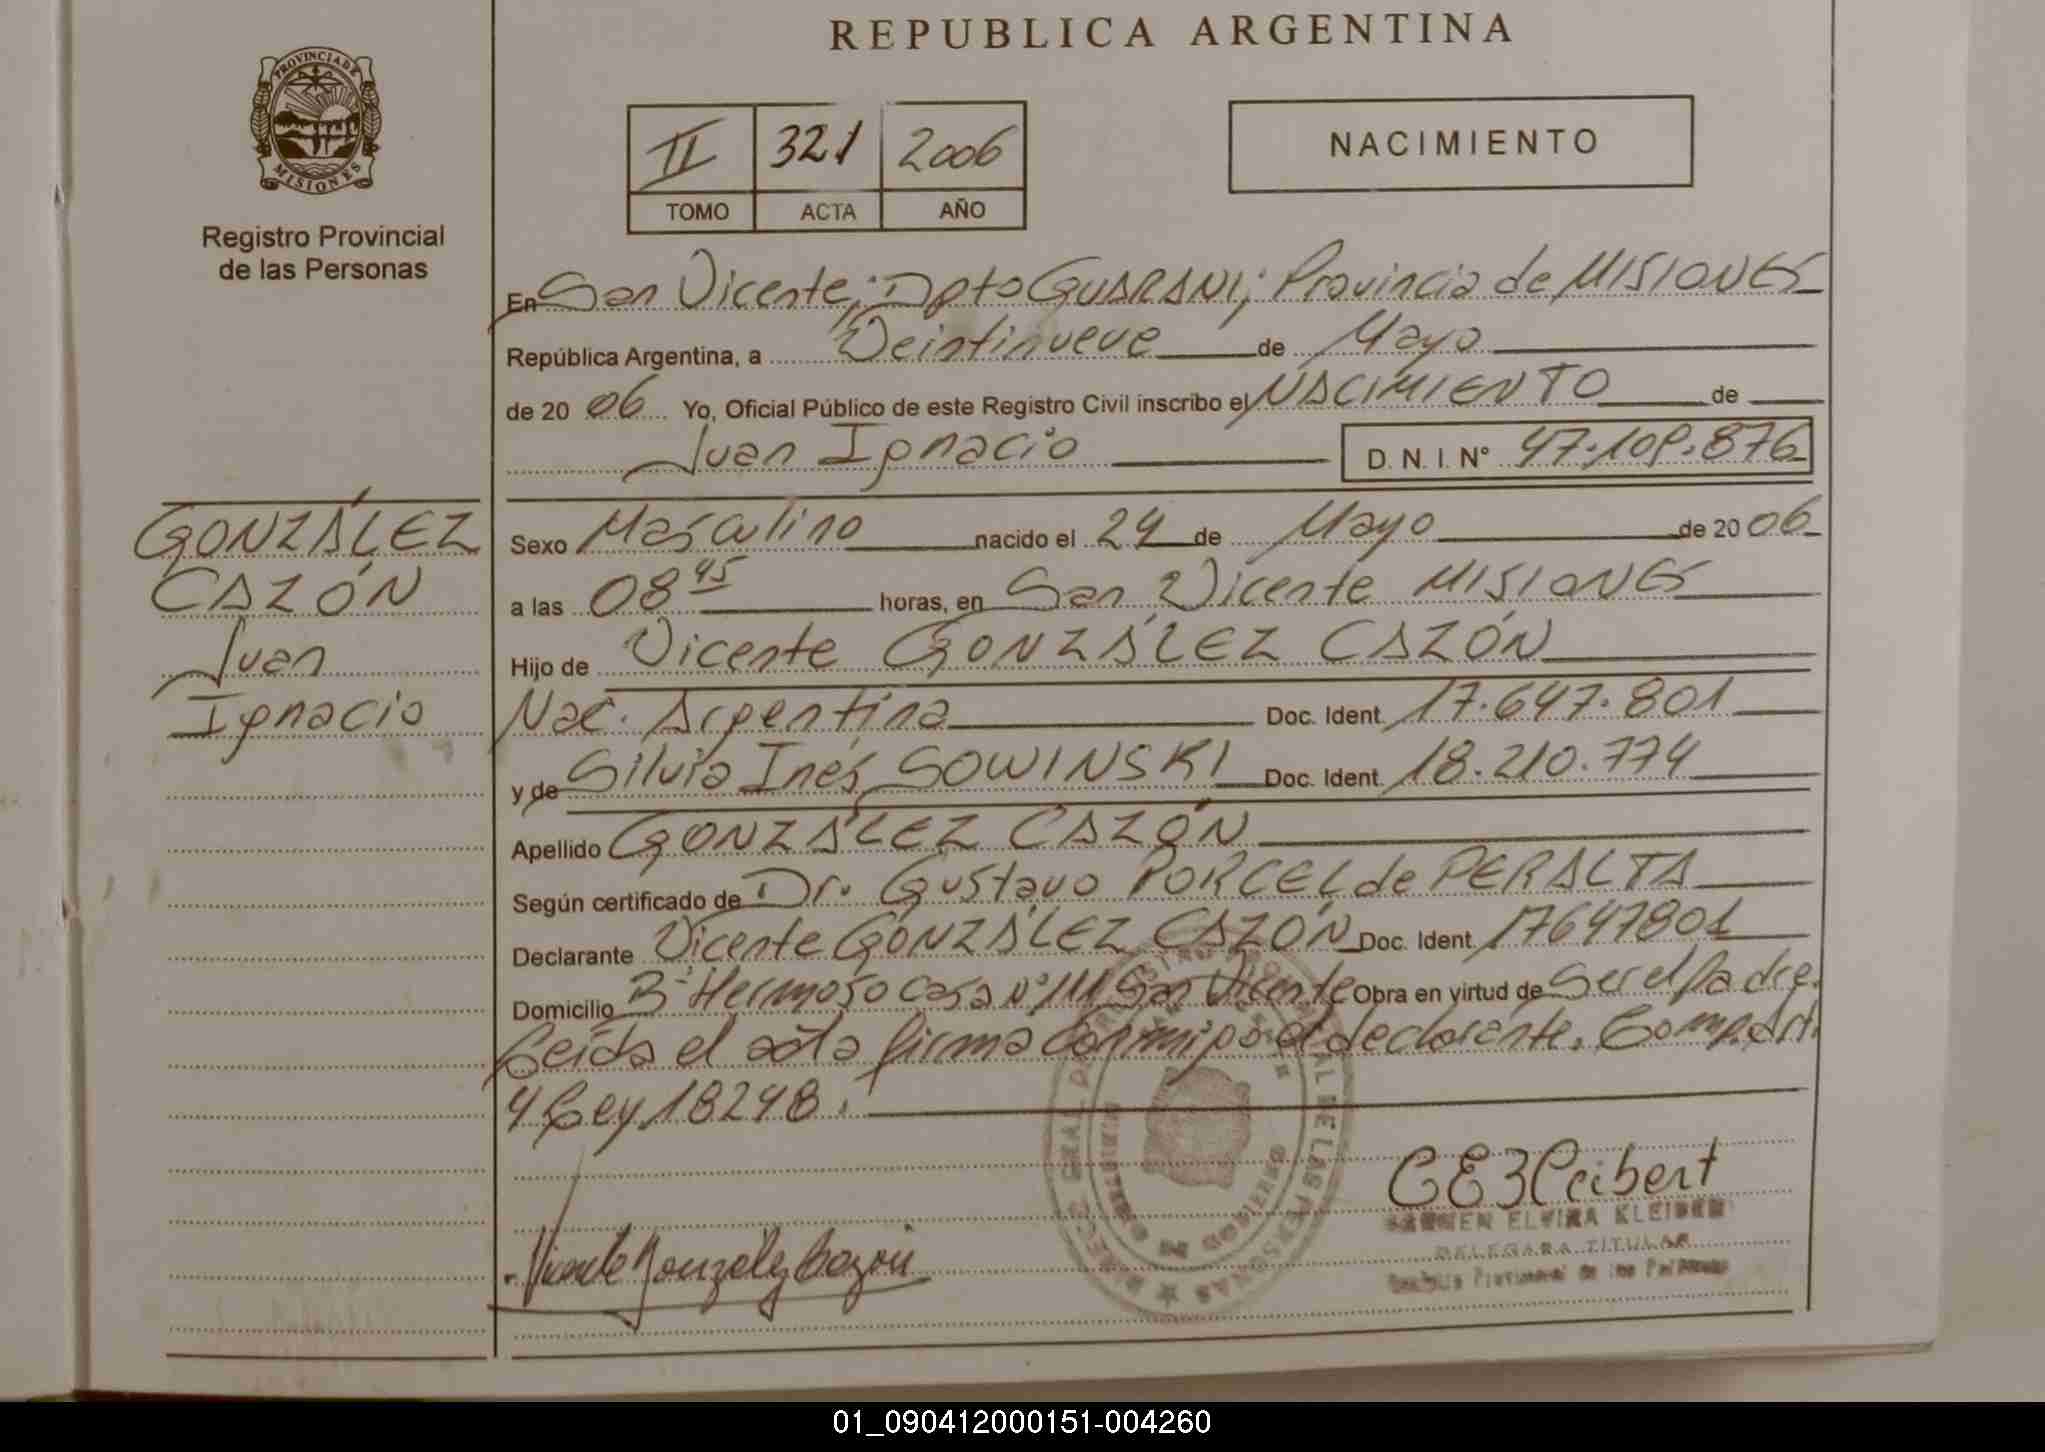 REPUBLICA ARGENTINA
PROVINCIA DE
MISIONES
Registro Provincial
de las Personas
II 321 2006
TOMO ACTA AÑO
NACIMIENTO
En San Vicente; Dpto GUARANI; Provincia de MISIONES
República Argentina, a Veintinueve de Mayo
de 20 06 Yo, Oficial Público de este Registro Civil inscribo el NACIMIENTO de
Juan Ignacio D. N. I. N° 47.109.876
GONZÁLEZ
CAZÓN
Juan
Ignacio
Sexo Masculino nacido el 24 de Mayo de 20 06
a las 08 45 horas, en San Vicente MISIONES
Hijo de Vicente GONZÁLEZ CAZÓN
Nac. Argentina Doc. Ident. 17.647.801
y de Silvia Inés SOWINSKI Doc. Ident. 18.210.774
Apellido GONZÁLEZ CAZÓN
Según certificado de Dr. Gustavo PORCEL de PERALTA
Declarante Vicente GONZÁLEZ CAZÓN Doc. Ident. 17647801
Domicilio B° Hermoso casa N° 111 San Vicente Obra en virtud de Ser el padre.
Leída el acta firma conmigo el declarante. Comp. Art.
4 Ley 18248.
Vicente González Cazón
DELEGADA TITULAR
Provincial de las Personas
01_090412000151-004260